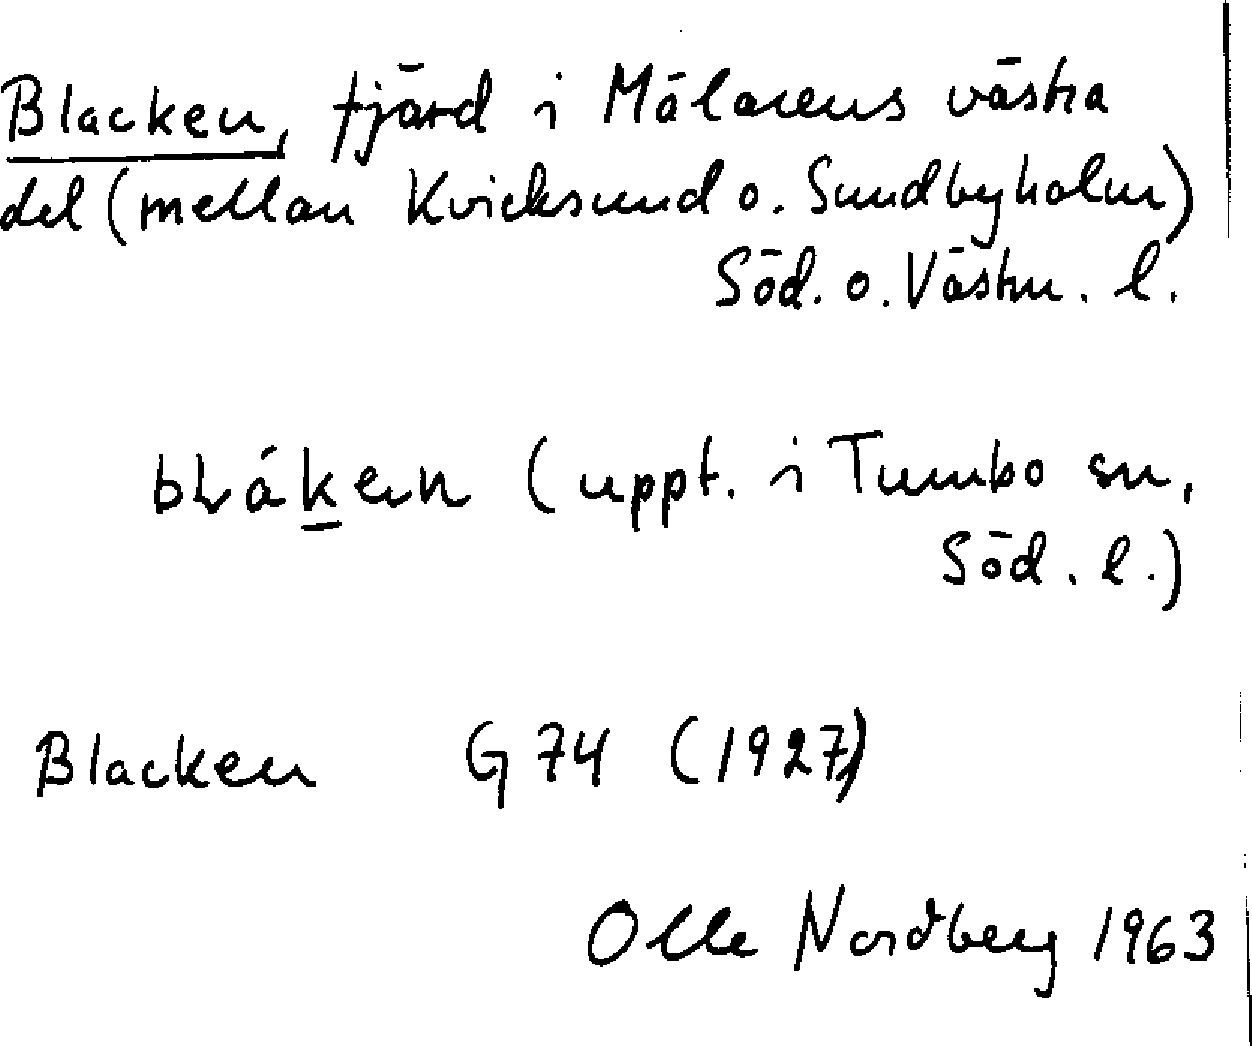 Blacken, fjärd i Mälarens västra
del (mellan Kvicksund o. Sundbyholm)
Söd. o. Västm. l.
blák̲en (uppt. i Tumbo sn,
Söd. l.)
Blacken G 74 (1927)
Olle Nordberg 1963